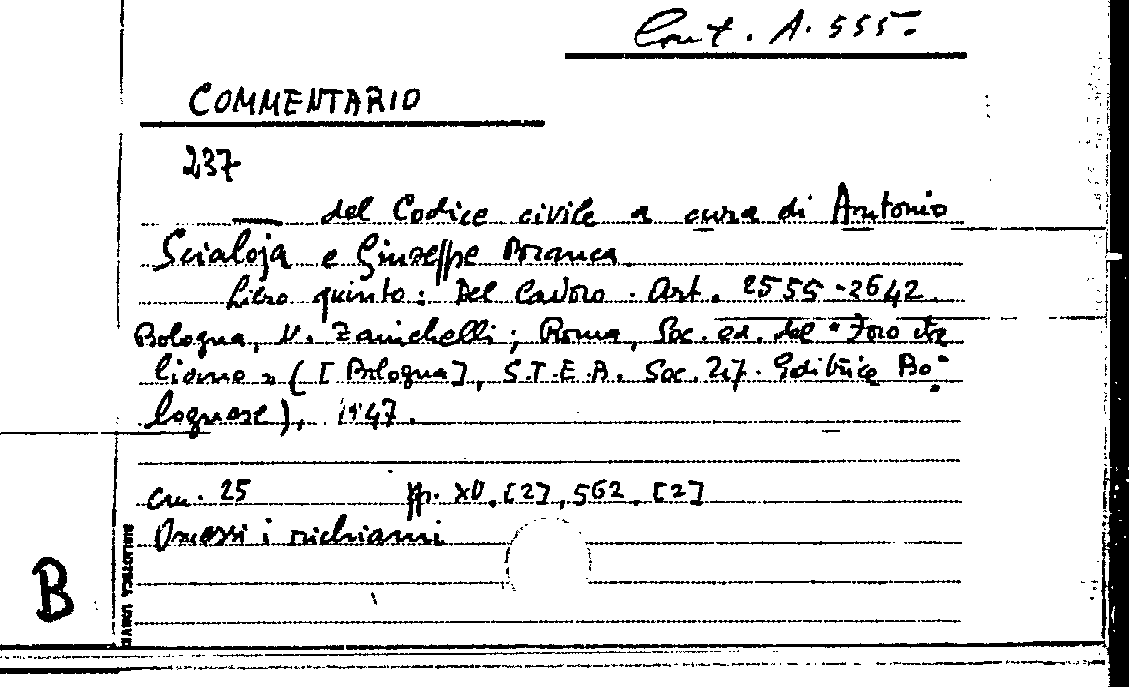 Cont. A. 555.
COMMENTARIO
237
— del Codice civile a cura di Antonio
Scialoja e Giuseppe Branca.
Libro quinto: Del Lavoro. Art. 2555-2642.
Bologna, N. Zanichelli; Roma, Soc. ed. del "Foro ita
liano" ([Bologna], S.T.E.B. Soc. Tip. Editrice Bo-
lognese), 1947.
cm. 25 pp. XV, [2], 562, [2]
Omessi i richiami
B
BIBLIOTECA